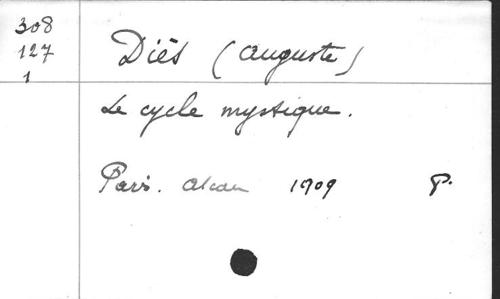 308
127
1
Diès (Auguste)
Le cycle mystique.
Paris. Alcan 1909 P.